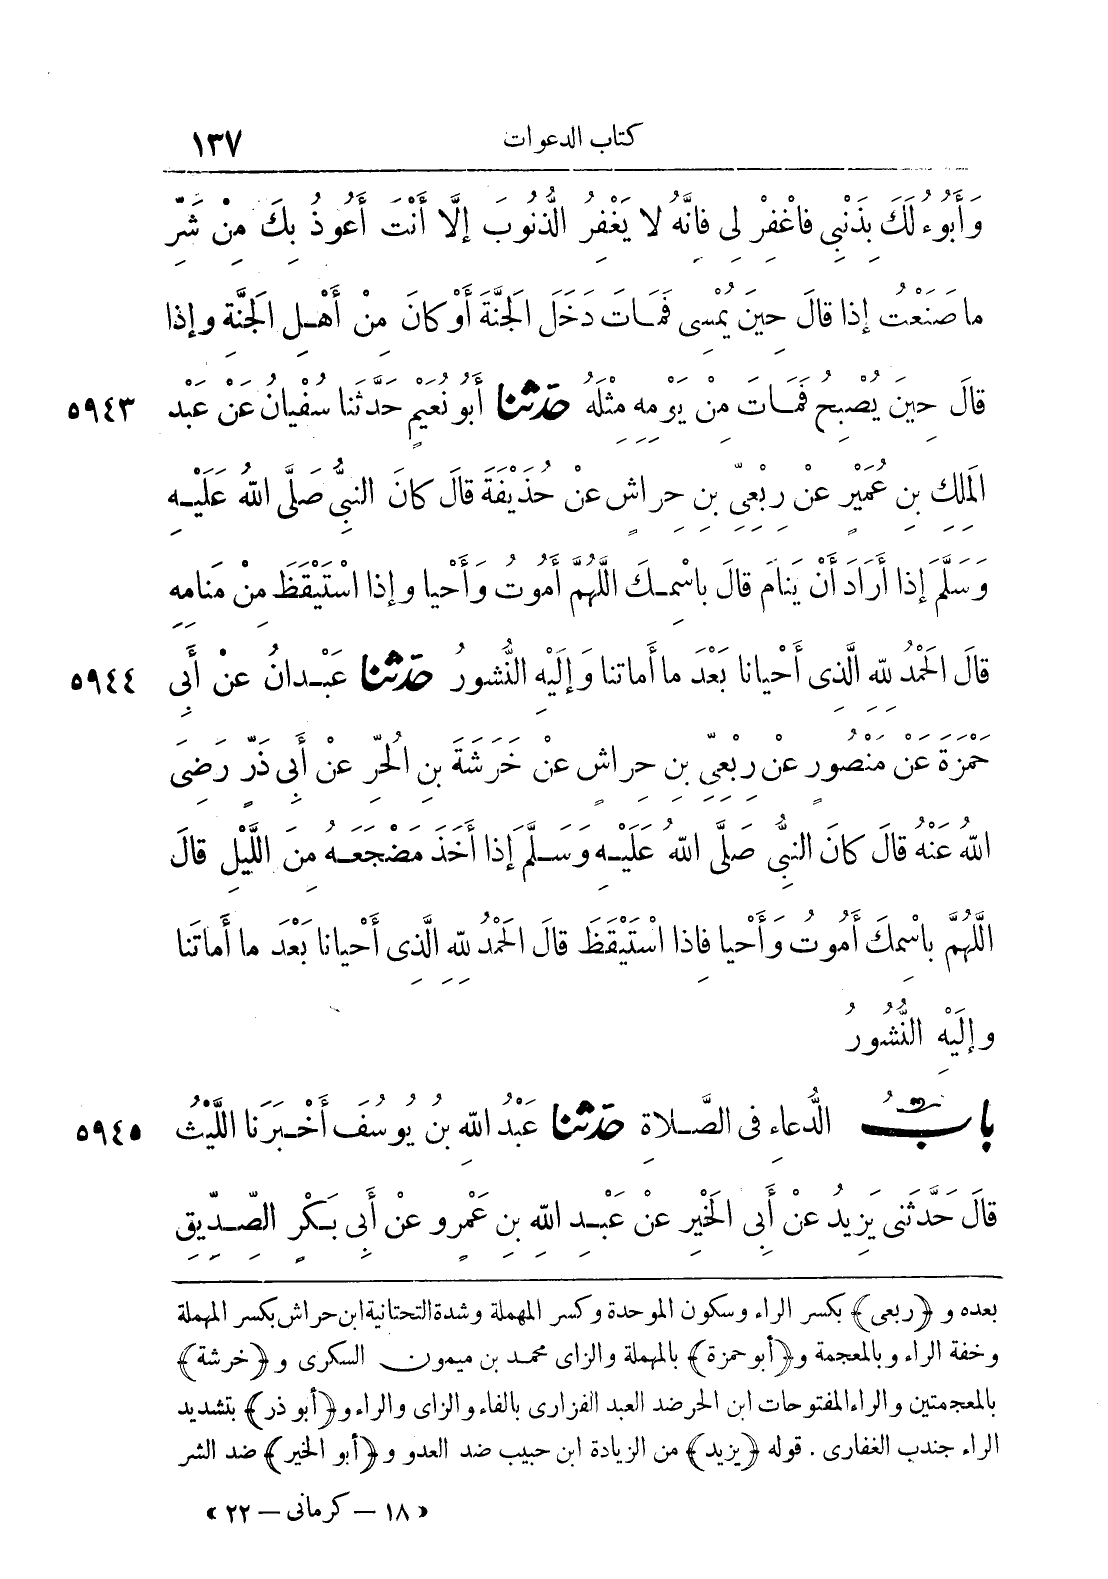 كتاب الدعوات ١٣٧
وَأَبُوءُ لَكَ بِذَنْبِى فَاغْفِرْ لِى فَانَّهُ لا يَغْفِرُ الذُّنُوبَ إِلَّا أَنْتَ أَعُوذُ بِكَ مِنْ شَرِّ
ما صَنَعْتُ إذا قالَ حِينَ يُمْسِى فَمَاتَ دَخَلَ الجَنَّةَ أَوْ كانَ مِنْ أَهْلِ الجَنَّةِ وإذا
قالَ حِينَ يُصْبِحُ فَمَاتَ مِنْ يَوْمِهِ مِثْلَهُ حَدَّثَنا أَبُو نُعَيْمٍ حَدَّثَنا سُفْيانُ عَنْ عَبْدِ ٥٩٤٣
المَلِكِ بنِ عُمَيْرٍ عَنْ رِبْعِىِّ بنِ حِراشٍ عَنْ حُذَيْفَةَ قالَ كانَ النبىُّ صَلَّى اللهُ عَلَيْهِ
وَسَلَّمَ إذا أَرَادَ أَنْ يَنامَ قالَ بِاسْمِكَ اللَّهُمَّ أَمُوتُ وَأَحْيا وإذا اسْتَيْقَظَ مِنْ مَنامِهِ
قالَ الحَمْدُ لِلّهِ الَّذِى أَحْيانا بَعْدَ ما أَماتنا وَإِلَيْهِ النُّشورُ حَدَّثَنا عَبْدانُ عنْ أَبِى ٥٩٤٤
حَمْزَةَ عَنْ مَنْصُورٍ عَنْ رِبْعِىِّ بنِ حِراشٍ عَنْ خَرَشَةَ بنِ الحُرِّ عنْ أَبِى ذَرٍّ رَضِىَ
اللهُ عَنْهُ قالَ كانَ النبىُّ صَلَّى اللهُ عَلَيْهِ وَسَلَّمَ إذا أَخَذَ مَضْجَعَهُ مِنَ اللَّيْلِ قالَ
اللَّهُمَّ بِاسْمِكَ أَمُوتُ وَأَحْيا فاِذا اسْتَيْقَظَ قالَ الحَمْدُ لِلّهِ الَّذِى أَحْيانا بَعْدَ ما أَماتَنا
وإلَيْهِ النُّشُورُ
بابُ الدُّعاءِ فى الصَّلاةِ حَدَّثَنا عَبْدُ اللهِ بنُ يُوسُفَ أَخْبَرَنا اللَّيْثُ ٥٩٤٥
قالَ حَدَّثَنى يَزِيدُ عَنْ أَبِى الخَيْرِ عَنْ عَبْدِ اللهِ بنِ عَمْرٍو عَنْ أَبى بَكْرٍ الصِّدِّيقِ
بعده و ﴿ربعى﴾ بكسر الراء وسكون الموحدة وكسر المهملة وشدة التحتانية ابن حراش بكسر المهملة
وخفة الراء وبالمعجمة و﴿أبو حمزة﴾ بالمهملة والزاى محمد بن ميمون السكرى و ﴿خرشة﴾
بالمعجمتين والراء المفتوحات ابن الحر ضد العبد الفزارى بالفاء والزاى والراء و﴿أبو ذر﴾ بتشديد
الراء جندب الغفارى . قوله ﴿يزيد﴾ من الزيادة ابن حبيب ضد العدو و ﴿أبو الخير﴾ ضد الشر
« ١٨ – كرمانى – ٢٢ »